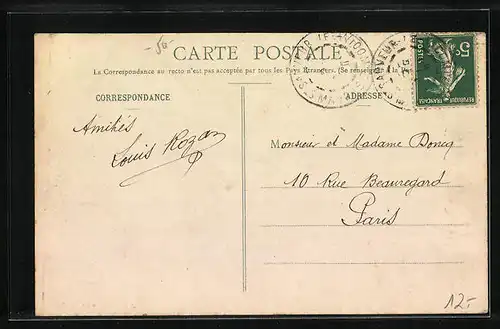 CARTE POSTALE
La Correspondance au recto n'est pas acceptée par tous les Pays Étrangers. (Se renseigner à la
CORRESPONDANCE
ADRESSE
5c
POSTES
REPUBLIQUE FRANÇAISE
Amitiés
Louis Rozan
Monsieur et Madame Doncq
10 Rue Beauregard
Paris
12.-